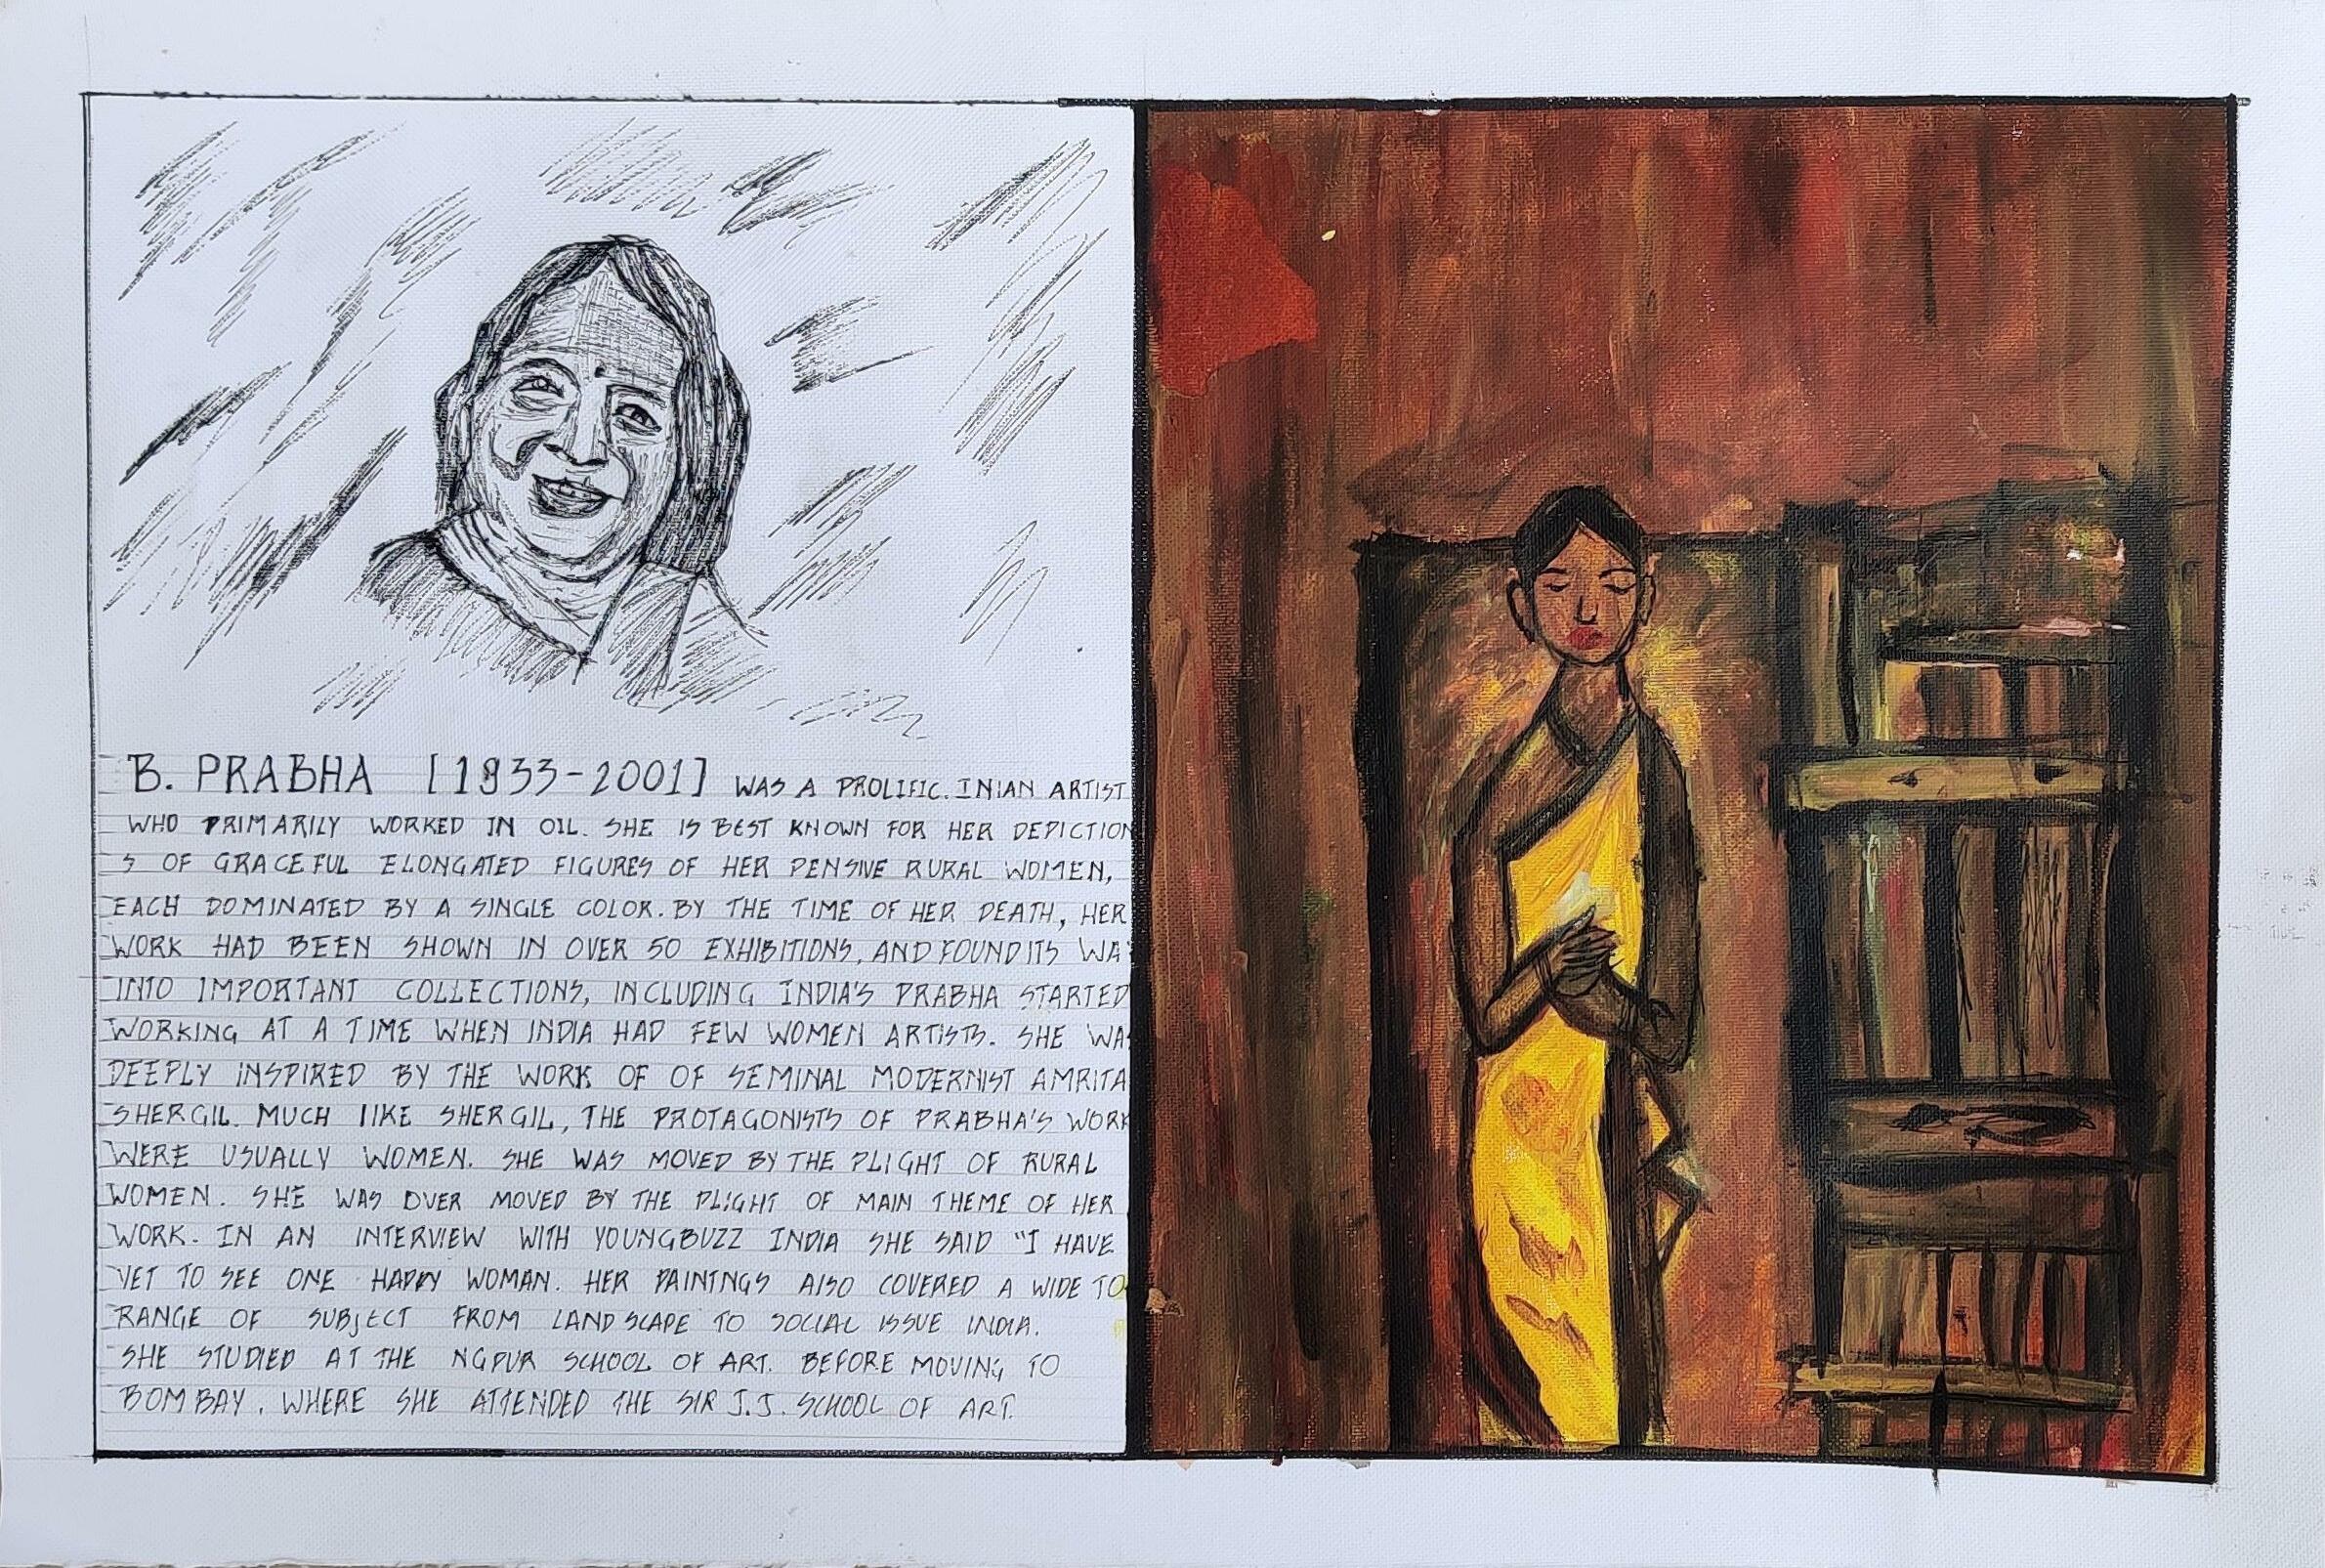 B. PRABHA [1933-2001] WAS A PROLIFIC. INIAN ARTIST
WHO PRIMARILY WORKED IN OIL. SHE IS BEST KNOWN FOR HER DEPICTION
S OF GRACEFUL ELONGATED FIGURES OF HER PENSIVE RURAL WOMEN,
EACH DOMINATED BY A SINGLE COLOR. BY THE TIME OF HER DEATH, HER
WORK HAD BEEN SHOWN IN OVER 50 EXHIBITIONS, AND FOUND ITS WAY
INTO IMPORTANT COLLECTIONS, INCLUDING INDIA'S PRABHA STARTED
WORKING AT A TIME WHEN INDIA HAD FEW WOMEN ARTISTS. SHE WAS
DEEPLY INSPIRED BY THE WORK OF OF SEMINAL MODERNIST AMRITA
SHERGIL. MUCH LIKE SHERGIL, THE PROTAGONISTS OF PRABHA'S WORK
WERE USUALLY WOMEN. SHE WAS MOVED BY THE PLIGHT OF RURAL
WOMEN. SHE WAS OVER MOVED BY THE PLIGHT OF MAIN THEME OF HER
WORK. IN AN INTERVIEW WITH YOUNGBUZZ INDIA SHE SAID "I HAVE
YET TO SEE ONE HAPPY WOMAN. HER PAINTINGS ALSO COVERED A WIDE TO
RANGE OF SUBJECT FROM LANDSCAPE TO SOCIAL ISSUE INDIA.
SHE STUDIED AT THE NGPUR SCHOOL OF ART. BEFORE MOVING TO
BOMBAY. WHERE SHE ATTENDED THE SIR J.J. SCHOOL OF ART.